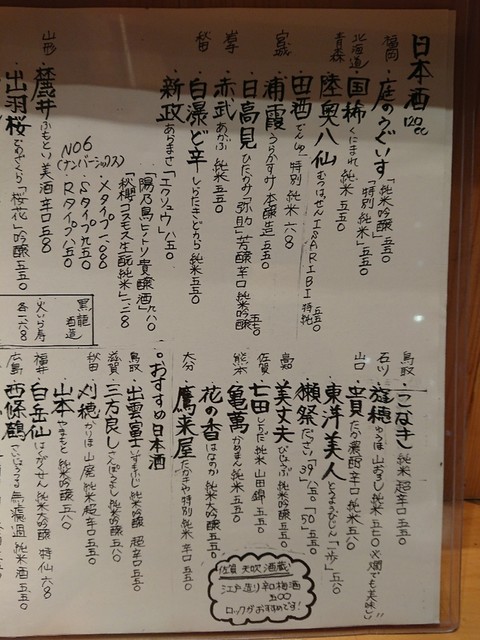 日本酒 120cc
福岡 庭のうぐいす「純米吟醸」五五〇
北海道 国稀 くにまれ「特別純米」五五〇
青森 陸奥八仙 むつはっせん ISARIBI 特純 五五〇
田酒 でんしゅ 特別純米 六〇〇
宮城 浦霞 うらかすみ 本醸造 五五〇
日高見 ひたかみ「弥助」芳醇辛口純米吟醸
岩手 赤武 あかぶ 純米 五五〇
秋田 白瀑ど辛 しらたきどから 純米 五五〇
新政 あらまさ「エクリュウ」八五〇
「陽乃鳥 ヒノトリ 貴醸酒」九八〇
「秋櫻 コスモス 生酛純米」
NO6
(ナンバーシックス)
Xタイプ 一一〇〇
Sタイプ 九五〇
Rタイプ 八五〇
山形 麓井 ふもとい 美酒辛口 五〇〇
出羽桜 でわざくら「桜花」吟醸 五五〇
黒龍酒造
火いら寿
各一六〇〇
鳥取 こなき 純米超辛口 五五〇
石川 遊穂 ゆうほ 山おろし純米 五五〇 ※燗でも美味しい
山口 貴 たか 濃醇辛口純米 五五〇
東洋美人 とうようびじん「一歩」五八〇
獺祭 だっさい「39」八五〇「50」五五〇
高知 美丈夫 びじょうぶ 純米吟醸 五五〇
佐賀 七田 しちだ 純米 山田錦 五五〇
熊本 亀萬 かめまん 純米吟醸 五五〇
花の香 はなのか 純米大吟醸 五五〇
大分 鷹来屋 たかきや 特別純米 辛口 五五〇
。おすすめ日本酒
鳥取 出雲富士 いずもふじ 純米吟醸 超辛口 五五〇
滋賀 三方良し さんぽうよし 純米吟醸 五八〇
秋田 刈穂 かりほ 山廃純米超辛口 五五〇
山本 やまもと 純米吟醸 六八〇
福井 白岳仙 はくがくせん 純米大吟醸 特仙 六〇〇
広島 西條鶴 さいじょうつる 無濾過純米酒 五五〇
佐賀 天吹酒蔵
江戸造り 和梅酒
五〇〇
ロックがおすすめです!